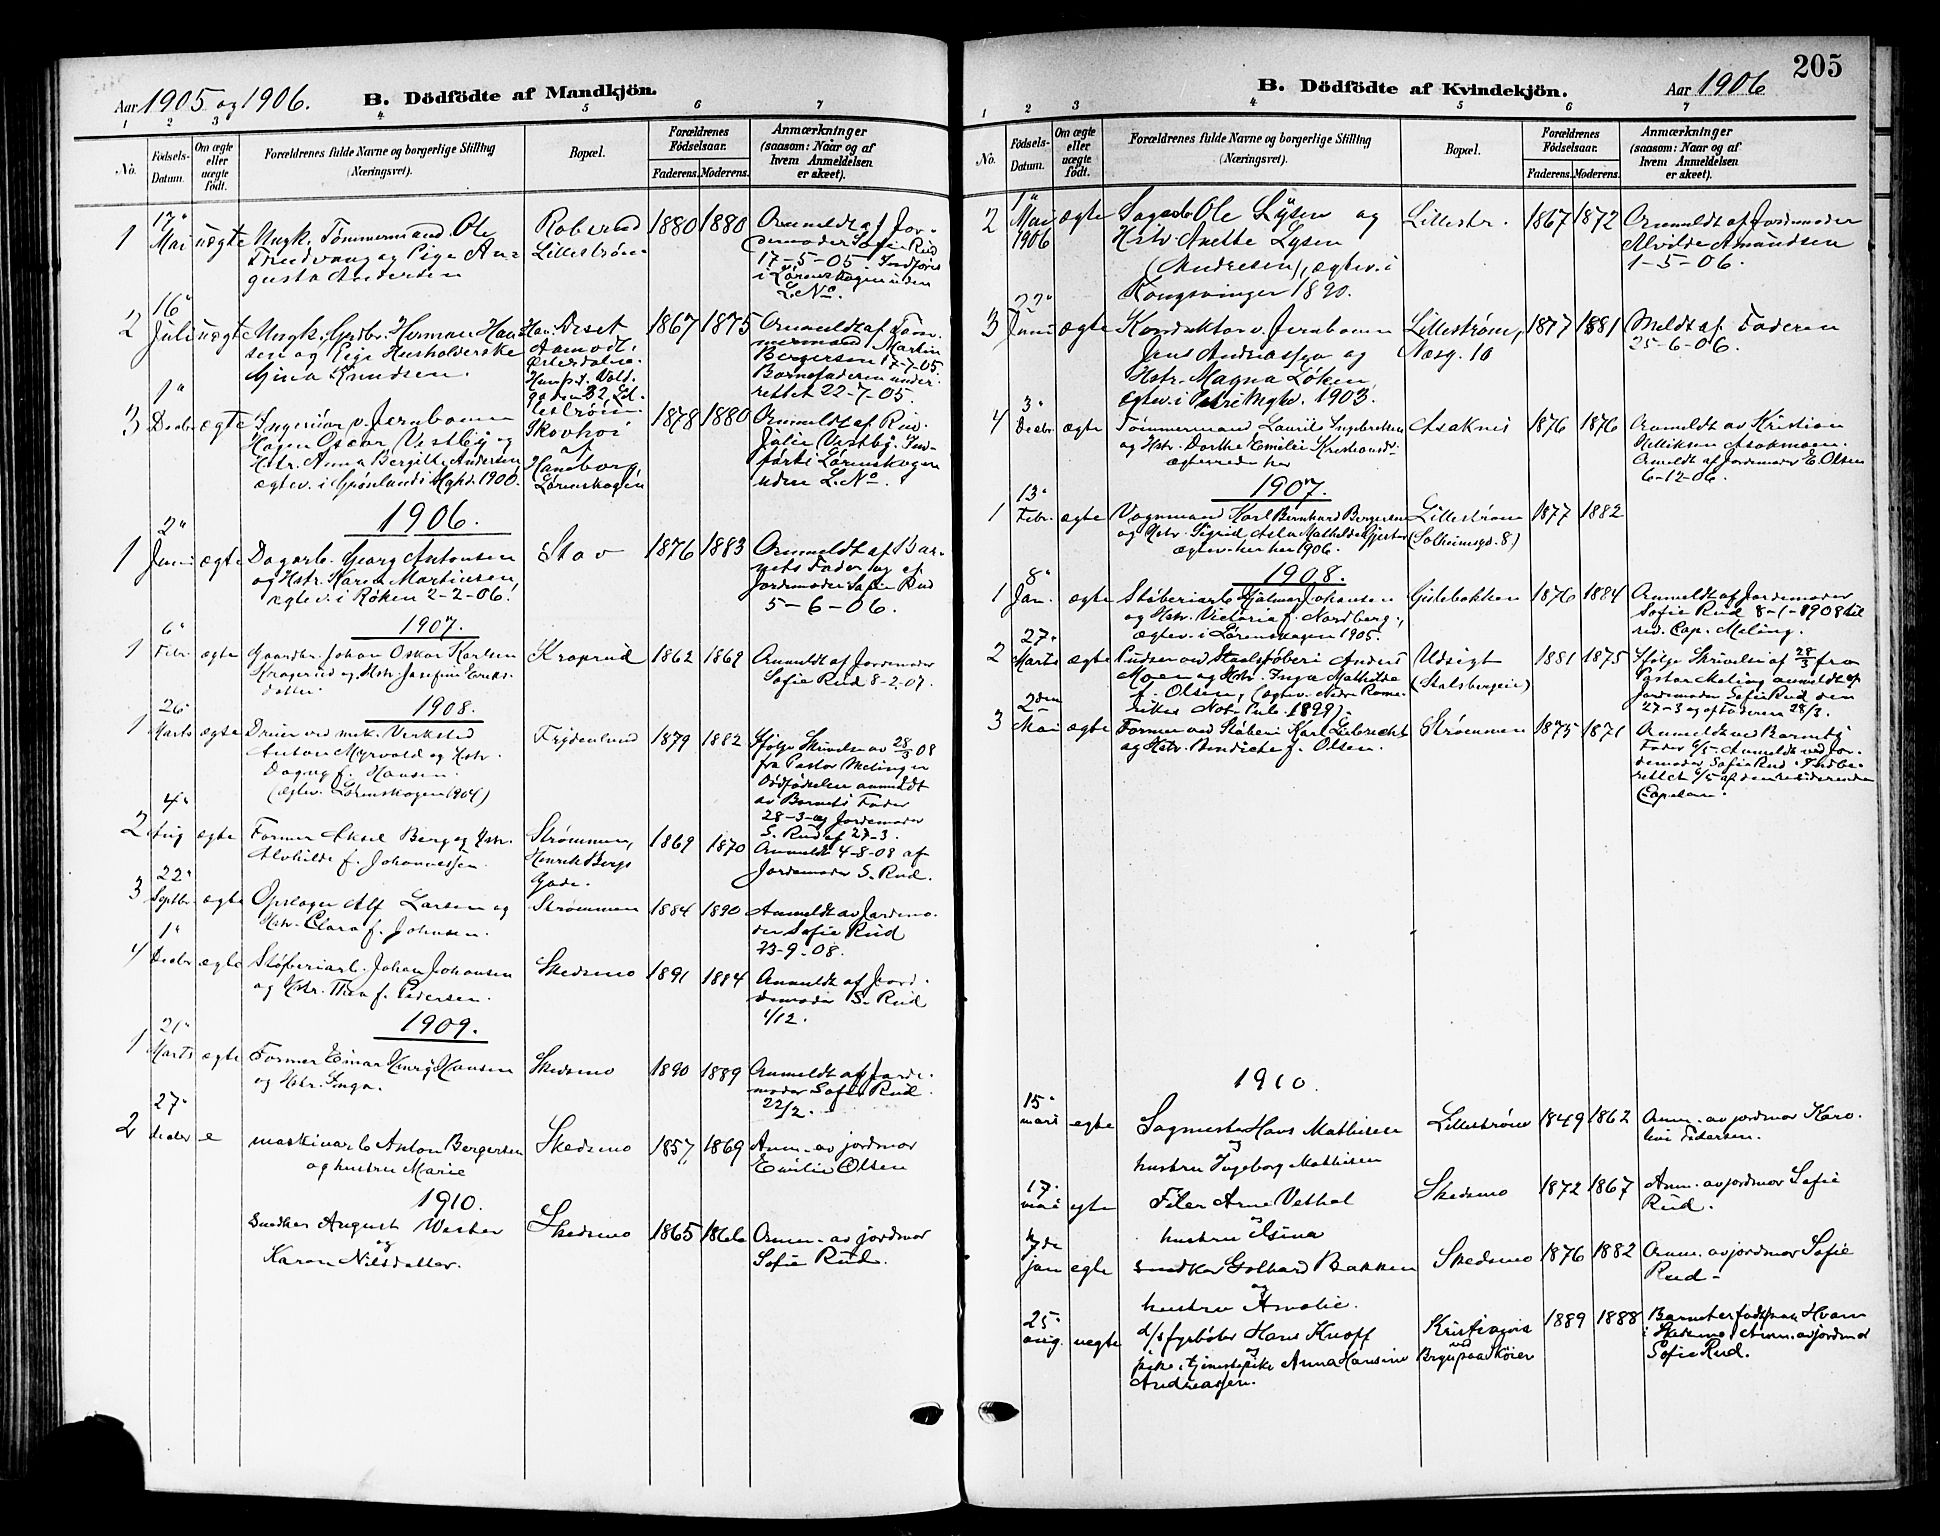 Aar 1905 og 1906.
B. Dödfödte af Mandkjön.
1 2 3 4 5 6 7
No.
Födsels-Datum.
Om ægte eller uægte födt.
Forældrenes fulde Navne og borgerlige Stilling (Næringsvei).
Bopæl.
Forældrenes Födselsaar.
Faderens. Moderens.
Anmærkninger (saasom: Naar og af hvem Anmeldelsen er skeet).
1 17" Mai uægte Ungk. Tømmermand Ole
og Pige Augusta Andersen
Lillestrøm 1880 1880
Anmeldt af Jordemoder Sofie Rud
17-5-05 Indført
i Lørenskogen uden
L.No.
2 16" Juli uægte Ungk. Herman Hansen og Pige Husholderske
Gina Knudsen.
Aamodt,
Østerdalen.
1867 1875
Anmeldt af Tømmermand Martin
Bergersen 17-7-05
Barnefaderen underrettet 22-7-05.
3 1" Decbr ægte Ingeniør v. Jernbanen
Hagen Oscar Vestby og
Hstr. Anna Bergitte Andersen,
ægtev. i Grønlands Mghd. 1900.
Skovhoi
Haneborg,
Lørenskogen
1878 1880
Anmeldt af
Julie Vestby. Indført i Lørenskogen
uden L.No.
1906.
1 2" Juni ægte Dagarb. Georg Antonsen
og Hstr. Karen Martinsen,
ægtev. i Røken 2-2-06.
Stav 1876 1883
Anmeldt af Barnets Fader og af
Jordemoder Sofie Rud
5-6-06.
1907.
1 6" Febr. ægte Gaardbr. Johan Oskar Karlsen
Kragerud og Hstr. Josefine Eriksdatter
Kraprud 1862 1869
Anmeldt af Jordemoder
Sofie Rud 8-2-07.
1908.
1 26" Marts ægte Dreier ved mek. Verksted
Anton Myrvold og Hstr.
Dagny f. Hansen.
(ægtev. Lørenskogen 1904)
Frydenlund 1879 1882
Ifølge Skrivelse av 28/3 08
fra Pastor Meling er
Dødfødselen anmeldt
av Barnets Fader
28-3 og Jordemoder
S. Rud af 27-3.
2 4" Aug ægte Former Aksel Berg og Hstr.
Alvhilde f. Johannessen.
Strømmen,
Henrik Bergs
Gade.
1869 1870
Anmeldt 4-8-08 af
Jordemoder S. Rud.
3 22" Septbr. ægte Opslager Alf Larsen og
Hstr. Clara f. Johnsen.
Strømmen 1884 1890
Anmeldt av Jordemoder Sofie Rud
23-9-08.
4 1" Decbr ægte Støberiarb. Johan Johansen
og Hstr. Thea f. Pedersen.
Skedsmo 1891 1884
Anmeldt af Jordemoder S. Rud
1/12.
1909.
1 21" Marts ægte Former Einar Henry Hansen
og Hstr. Inga.
Skedsmo 1890 1889
Anmeldt af Jordemoder Sofie Rud.
22/2.
2 27" decbr e maskinarb Anton Bergersen
og hustru Marie
Skedsmo 1857 1869
Anm. av jordmor
Emilie Olsen
1910.
Snedker August Wester
og
Karen Nilsdatter.
Skedsmo 1865 1866
Anm. av jordmor
Sofie Rud.
205
B. Dödfödte af Kvindekjön.
Aar 1906
1 2 3 4 5 6 7
No.
Födsels-Datum.
Om ægte eller uægte födt.
Forældrenes fulde Navne og borgerlige Stilling (Næringsvei).
Bopæl.
Forældrenes Födselsaar.
Faderens. Moderens.
Anmærkninger (saasom: Naar og af hvem Anmeldelsen er skeet).
2 1" Mai 1906 ægte Sagarb Ole Lysen og
Hstr. Anette Lysen
(Andresen), ægtev. i
Kongsvinger 1890.
Lillestr. 1867 1872
Anmeldt af Jordemoder
Alvilde Amundsen
1-5-06.
3 22" Juni ægte Konduktør v. Jernbanen
Jens Andreassen og
Hstr. Magna Løken,
ægtev. i Petri Mghd. 1903.
Lillestrøm,
Næsg. 10
1877 1881
Meldt af Faderen
25-6-06.
4 3" Decbr ægte Tømmermand Laurits Ingebretsen
og Hstr. Dorthe Emilie Kristiansd.
ægteviede her
Asaknis 1876 1876
Anmeldt av Kristian
Asakmoen.
Anmeldt af Jordemoder E. Olsen
6-12-06.
1907.
1 13" Febr. ægte Vognmand Karl Bernhard Bergersen
og Hstr. Sigrid Asla Mathilde
ægtev. her 1906.
Lillestrøm
(Solheimsgd. 8)
1877 1882
1908.
1 8" Jan. ægte Støberiarb. Hjalmar Johansen
og Hstr. Victoria f. Nordberg,
ægtev. i Lørenskogen 1905.
Gislebakken 1876 1884
Anmeldt af Jordemoder
Sofie Rud 8-1-1908 til
red. Cap. Meling.
2 27" Marts ægte Pudser ved Staalstøberi Anders
Moen og Hstr. Inga Mathilde
f. Olsen, (ægtev. Nedre Romerikes Not. Publ. 1899).
Udsigt
(Stalsbergeie)
1881 1875
Ifølge Skrivelse af 28/3 fra
Pastor Meling anmeldt af
Jordemoder Sofie Rud den
27-3 og af Faderen 28/3.
3 2den Mai ægte Former ved Støberi Karl Liebrecht
og Hstr. Bendicte f. Olsen.
Strømmen 1875 1871
Anmeldt ved Barnets
Fader 6/5. Anmeldt ved Jordemoder Sofie Rud. Indberettet 6/5 af den residerende
Capelan.
1910.
15" mars egte Sagmester Hans Mathisen
og
hustru Ingeborg Mathisen
Lillestrøm 1849 1862
Anm. av jordmor Karoline Pedersen.
17. mai egte Filer Arne Vethal
og
hustru Gina
Skedsmo 1872 1867
Anm. av jordmor Sofie
Rud.
7de jan egte snedker Golhard Bakken
og
hustru Amalie.
Skedsmo 1876 1882
Anm. av jordmor Sofie
Rud-
25" aug. uegte d/s fyrbøter Hans Knoff
og
pike, tjenestepike Anna Hansine
Andreassen.
Kristiania
ved
1889 1888
Barnet er født paa Hvam
i Skedsmo. Anm. av jordmor
Sofie Rud.